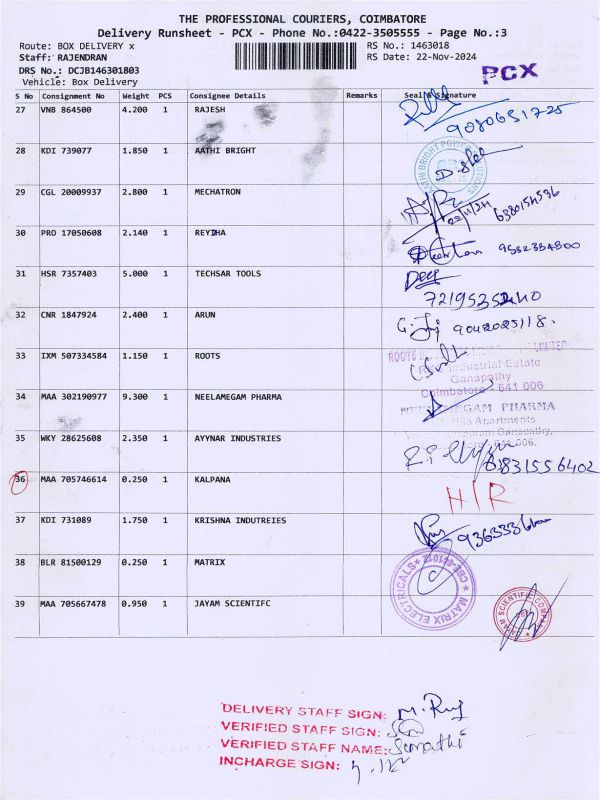 THE PROFESSIONAL COURIERS, COIMBATORE
Delivery Runsheet - PCX - Phone No.:0422-3505555 - Page No.:3
Route: BOX DELIVERY x RS No.: 1463018
Staff: RAJENDRAN RS Date: 22-Nov-2024
DRS No.: DCJB146301803 PCX
Vehicle: Box Delivery
S No Consignment No Weight PCS Consignee Details Remarks Seal & Signature
27 VNB 864500 4.200 1 RAJESH
9080651725
28 KDI 739077 1.850 1 AATHI BRIGHT
29 CGL 20009937 2.800 1 MECHATRON
30 PRO 17050608 2.140 1
31 HSR 7357403 5.000 1 TECHSAR TOOLS
32 CNR 1847924 2.400 1 ARUN
9042025118.
33 IXM 507334584 1.150 1 ROOTS
ROOTS LIMITED
Industrial Estate
Ganapathy
Coimbatore - 641 006
34 MAA 302190977 9.300 1 NEELAMEGAM PHARMA
PHARMA
Apartments
Ganapathy,
35 WKY 28625608 2.350 1 AYYNAR INDUSTRIES
6831556402
36 MAA 705746614 0.250 1 KALPANA
H/R
37 KDI 731089 1.750 1 KRISHNA INDUTREIES
38 BLR 81500129 0.250 1 MATRIX
MATRIX ELECTRICALS
39 MAA 705667478 0.950 1 JAYAM SCIENTIFC
DELIVERY STAFF SIGN:
VERIFIED STAFF SIGN:
VERIFIED STAFF NAME: Sumathi
INCHARGE SIGN: